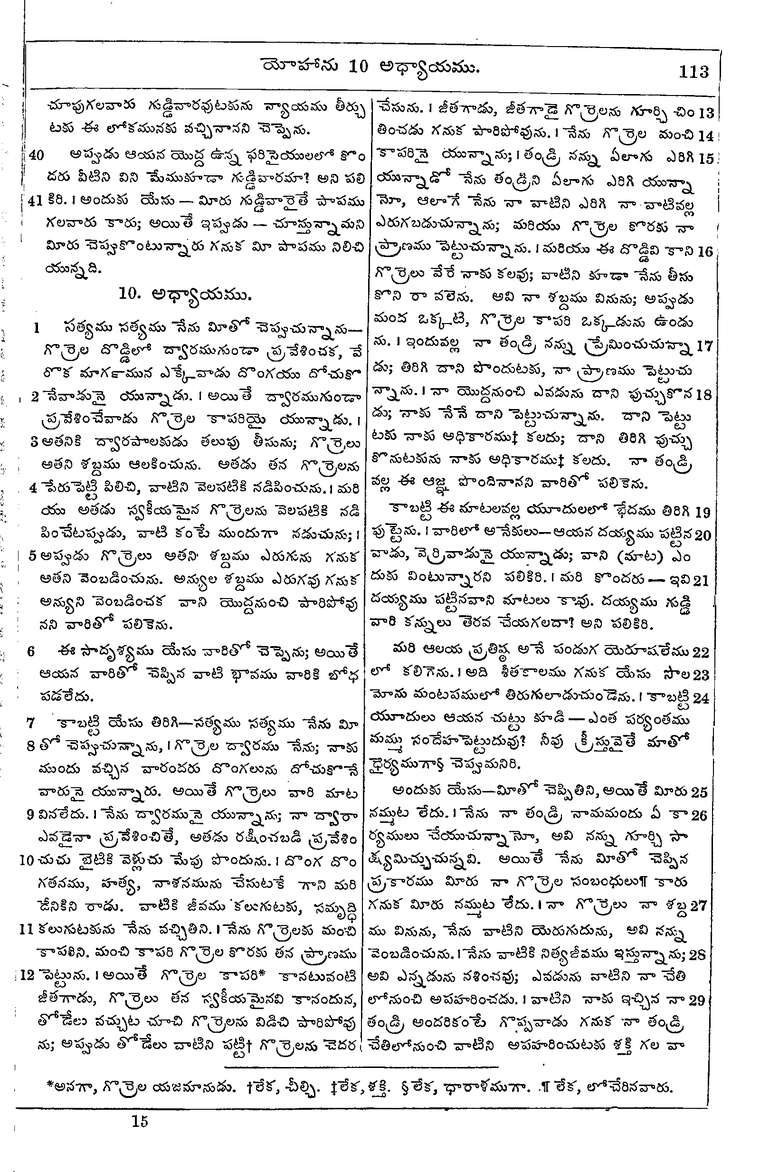 యోహాను 10 అధ్యాయము.
113
చూపుగలవారు గుడ్డివారవుటకును న్యాయము తీర్చు
టకు ఈ లోకమునకు వచ్చినానని చెప్పెను.
40 అప్పుడు ఆయన యొద్ద ఉన్న ఫరిసైయులలో కొం
దరు వీటిని విని మేముకూడా గుడ్డివారమా? అని పలి
41 కిరి. । అందుకు యేసు — మీరు గుడ్డివారైతే పాపము
గలవారు కారు; అయితే ఇప్పుడు — చూస్తున్నామని
మీరు చెప్పుకొంటున్నారు గనుక మీ పాపము నిలిచి
యున్నది.
10. అధ్యాయము.
1 సత్యము సత్యము నేను మీతో చెప్పుచున్నాను—
గొఱ్ఱెల దొడ్డిలో ద్వారముగుండా ప్రవేశించక, వే
రొక మార్గమున ఎక్కేవాడు దొంగయు దోచుకొ
2 నేవాడునై యున్నాడు. । అయితే ద్వారముగుండా
ప్రవేశించేవాడు గొఱ్ఱెల కాపరియై యున్నాడు. ।
3 అతనికి ద్వారపాలకుడు తలుపు తీసును; గొఱ్ఱెలు
అతని శబ్దము ఆలకించును. అతడు తన గొఱ్ఱెలను
4 పేరుపెట్టి పిలిచి, వాటిని వెలపటికి నడిపించును. । మరి
యు అతడు స్వకీయమైన గొఱ్ఱెలను వెలపటికి నడి
పించేటప్పుడు, వాటి కంటే ముందుగా నడుచును; ।
5 అప్పుడు గొఱ్ఱెలు అతని శబ్దము ఎరుగును గనుక
అతని వెంబడించును. అన్యుల శబ్దము ఎరుగవు గనుక
అన్యుని వెంబడించక వాని యొద్దనుంచి పారిపోవు
నని వారితో పలికెను.
6 ఈ సాదృశ్యము యేసు వారితో చెప్పెను; అయితే
ఆయన వారితో చెప్పిన వాటి భావము వారికి బోధ
పడలేదు.
7 కాబట్టి యేసు తిరిగి—సత్యము సత్యము నేను మీ
8 తో చెప్పుచున్నాను, । గొఱ్ఱెల ద్వారము నేను; నాకు
ముందు వచ్చిన వారందరు దొంగలును దోచుకొనే
వారునై యున్నారు. అయితే గొఱ్ఱెలు వారి మాట
9 వినలేదు. । నేను ద్వారమునై యున్నాను; నా ద్వారా
ఎవడైనా ప్రవేశించితే, అతడు రక్షించబడి ప్రవేశిం
10 చుచు బైటికి వెళ్లుచు మేపు పొందును. । దొంగ దొం
గతనము, హత్య, నాశనమును చేసుటకే గాని మరి
దేనికిని రాడు. వాటికి జీవము కలుగుటకు, సమృద్ధి
11 కలుగుటకును నేను వచ్చితిని. । నేను గొఱ్ఱెలకు మంచి
కాపరిని. మంచి కాపరి గొఱ్ఱెల కొరకు తన ప్రాణము
12 పెట్టును. । అయితే గొఱ్ఱెల కాపరి* కానటువంటి
జీతగాడు, గొఱ్ఱెలు తన స్వకీయమైనవి కానందున,
తోడేలు వచ్చుట చూచి గొఱ్ఱెలను విడిచి పారిపోవు
ను; అప్పుడు తోడేలు వాటిని పట్టి† గొఱ్ఱెలను చెదర
చేసును. । జీతగాడు, జీతగాడై గొఱ్ఱెలను గూర్చి చిం 13
తించడు గనుక పారిపోవును. । నేను గొఱ్ఱెల మంచి 14
కాపరినై యున్నాను; । తండ్రి నన్ను ఏలాగు ఎరిగి 15
యున్నాడో నేను తండ్రిని ఏలాగు ఎరిగి యున్నా
నో, ఆలాగే నేను నా వాటిని ఎరిగి నా వాటివల్ల
ఎరుగబడుచున్నాను; మరియు గొఱ్ఱెల కొరకు నా
ప్రాణము పెట్టుచున్నాను. । మరియు ఈ దొడ్డివి కాని 16
గొఱ్ఱెలు వేరే నాకు కలవు; వాటిని కూడా నేను తీసు
కొని రా వలెను. అవి నా శబ్దము వినును; అప్పుడు
మంద ఒక్కటి, గొఱ్ఱెల కాపరి ఒక్కడును ఉండు
ను. । ఇందువల్ల నా తండ్రి నన్ను ప్రేమించుచున్నా 17
డు; తిరిగి దాని పొందుటకు, నా ప్రాణము పెట్టుచు
న్నాను. । నా యొద్దనుంచి ఎవడును దాని పుచ్చుకొన 18
డు; నాకు నేనే దాని పెట్టుచున్నాను. దాని పెట్టు
టకు నాకు అధికారము‡ కలదు; దాని తిరిగి పుచ్చు
కొనుటకును నాకు అధికారము‡ కలదు. నా తండ్రి
వల్ల ఈ ఆజ్ఞ పొందినానని వారితో పలికెను.
కాబట్టి ఈ మాటలవల్ల యూదులలో భేదము తిరిగి 19
పుట్టెను. । వారిలో అనేకులు—ఆయన దయ్యము పట్టిన 20
వాడు, వెర్రివాడునై యున్నాడు; వాని (మాట) ఎం
దుకు వింటున్నారని పలికిరి. । మరి కొందరు — ఇవి 21
దయ్యము పట్టినవాని మాటలు కావు. దయ్యము గుడ్డి
వారి కన్నులు తెరవ చేయగలదా? అని పలికిరి.
మరి ఆలయ ప్రతిష్ఠ అనే పండుగ యెరూషలేము 22
లో కలిగెను. । అది శీతకాలము గనుక యేసు సొల 23
మోను మంటపములో తిరుగులాడుచుండెను. । కాబట్టి 24
యూదులు ఆయన చుట్టు కూడి — ఎంత పర్యంతము
మమ్ము సందేహపెట్టుదువు? నీవు క్రీస్తువైతే మాతో
ధైర్యముగా§ చెప్పుమనిరి.
అందుకు యేసు—మీతో చెప్పితిని, అయితే మీరు 25
నమ్ముట లేదు. । నేను నా తండ్రి నామమందు ఏ కా 26
ర్యములు చేయుచున్నానో, అవి నన్ను గూర్చి సా
క్ష్యమిచ్చుచున్నవి. అయితే నేను మీతో చెప్పిన
ప్రకారము మీరు నా గొఱ్ఱెల సంబంధులు¶ కారు
గనుక మీరు నమ్ముట లేదు. । నా గొఱ్ఱెలు నా శబ్ద 27
ము వినును, నేను వాటిని యెరుగుదును, అవి నన్ను
వెంబడించును. । నేను వాటికి నిత్యజీవము ఇస్తున్నాను; 28
అవి ఎన్నడును నశించవు; ఎవడును వాటిని నా చేతి
లోనుంచి అపహరించడు. । వాటిని నాకు ఇచ్చిన నా 29
తండ్రి అందరికంటే గొప్పవాడు గనుక నా తండ్రి
చేతిలోనుంచి వాటిని అపహరించుటకు శక్తి గల వా
*అనగా, గొఱ్ఱెల యజమానుడు. †లేక, చీల్చి. ‡లేక, శక్తి. §లేక, ధారాళముగా. ¶ లేక, లో చేరినవారు.
15